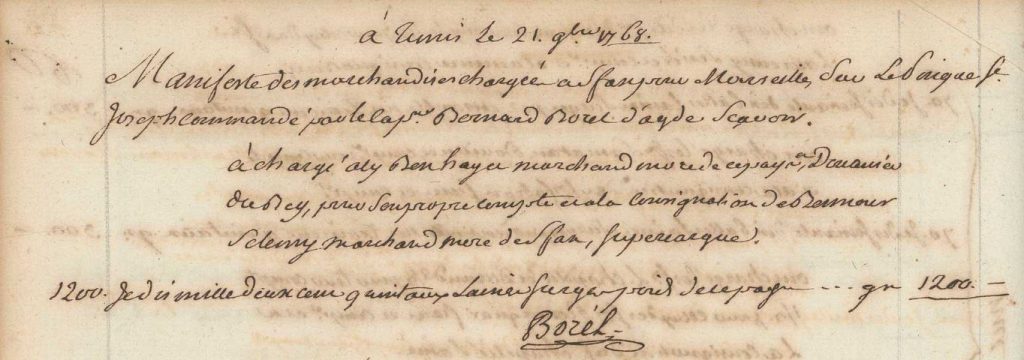 à Tunis le 21. 9bre 1768.
Manifeste des marchandises chargée a Sfax pour Marseille, Sur Le Pinque St.
Joseph Commandé par le Capne. Bernard Borel d'agde Scavoir.
à chargé aly Ben hayet marchand more de ce pays, Douanier
du Bey, pour Son propre compte et a la Consignation de
Selemy marchand more de Sfax, Supercargue.
1200. Je dis mille deux cent quintaux Laines Surges poids de ce pays --- qx 1200. =
Borel